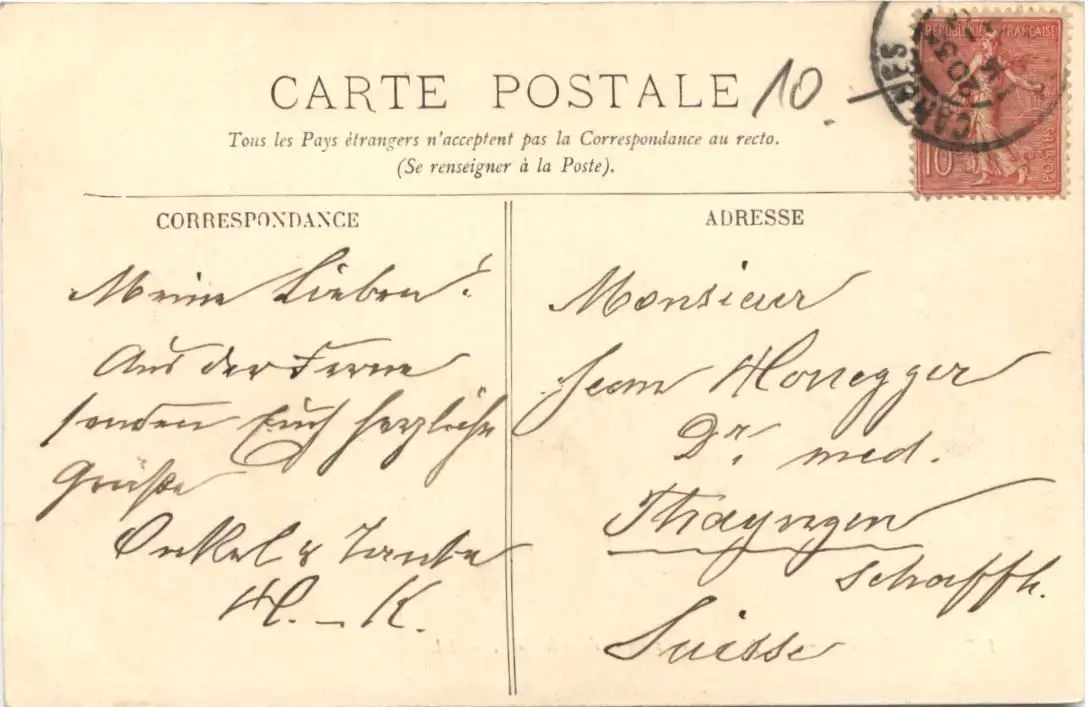 CARTE POSTALE 10.
Tous les Pays étrangers n'acceptent pas la Correspondance au recto.
(Se renseigner à la Poste).
REPUBLIQUE FRANÇAISE
10
POSTES
CANNES
CORRESPONDANCE
Meine Lieben!
Aus der Ferne
senden Euch herzliche
Grüße
Onkel & Tante
H. - K.
ADRESSE
Monsieur
Jean Honegger
Dr. med.
Thayngen
Schaffh.
Suisse